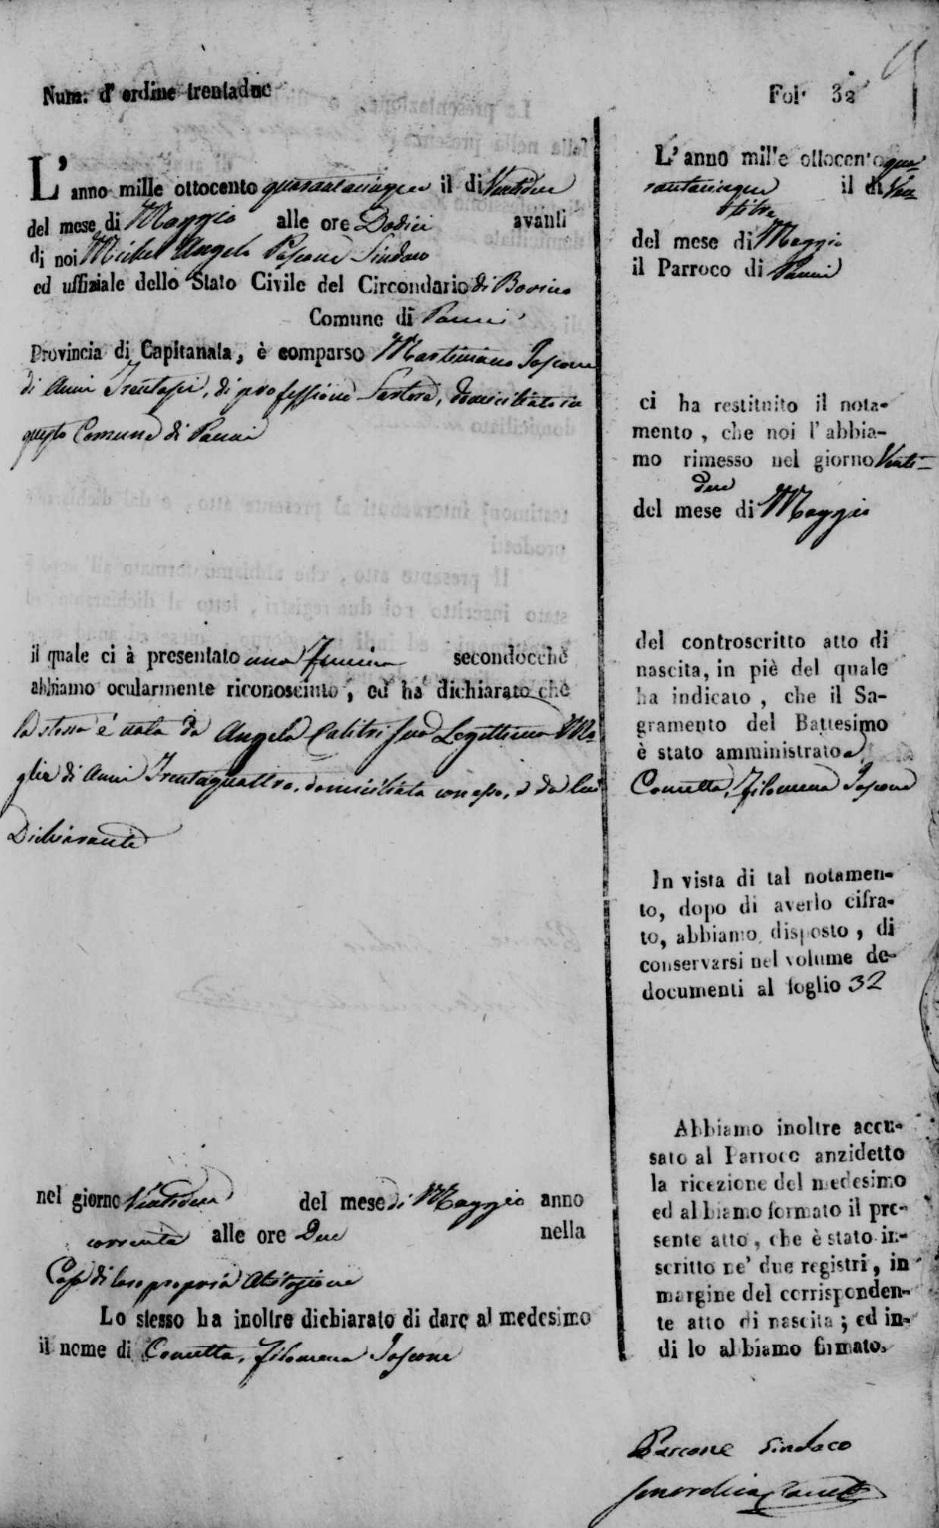 Num: d' ordine trentadue
Fol· 32
L' anno mille ottocento quarantacinque il di Ventidue
del mese di Maggio alle ore Dodici avanti
di noi Michel Angelo Pascone Sindaco
ed uffiziale dello Stato Civile del Circondario di Bovino
Comune di Panni
Provincia di Capitanata, è comparso Martiniano
di Anni Trentasei, di professione Sartore, domiciliato in
questo Comune di Panni
il quale ci à presentato una femina secondocchè
abbiamo ocularmente riconosciuto, ed ha dichiarato che
la stessa è nata da Angela Calitri sua Legittima Mo-
glie di Anni Trentaquattro, domiciliata con esso, e da lui
Dichiarante
nel giorno Ventidue del mese di Maggio anno
corrente alle ore Due nella
Casa di loro propria abitazione
Lo stesso ha inoltre dichiarato di dare al medesimo
il nome di Concetta, Filomena
L' anno mille ottocento qua
rantacinque il di Ven
titre
del mese di Maggio
il Parroco di Panni
ci ha restituito il nota-
mento, che noi l' abbia-
mo rimesso nel giorno Venti-
due
del mese di Maggio
del controscritto atto di
nascita, in piè del quale
ha indicato, che il Sa-
gramento del Battesimo
è stato amministrato a
Concetta, Filomena
In vista di tal notamen-
to, dopo di averlo cifra-
to, abbiamo disposto, di
conservarsi nel volume de-
documenti al foglio 32
Abbiamo inoltre accu-
sato al Parroco anzidetto
la ricezione del medesimo
ed abbiamo formato il pre-
sente atto, che è stato in-
scritto ne' due registri, in
margine del corrisponden-
te atto di nascita; ed in-
di lo abbiamo firmato.
Pascone Sindaco